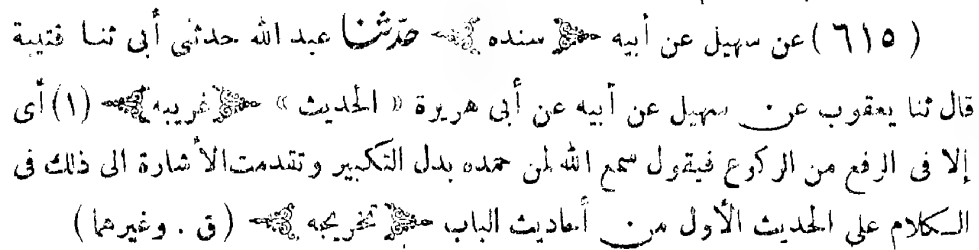 ( ٦١٥ ) عن سهيل عن أبيه ﴿ سنده ﴾ حدّثنا عبد الله حدثنى أبى ثنا قتيبة
قال ثنا يعقوب عن سهيل عن أبيه عن أبى هريرة « الحديث » ﴿ غريبه ﴾ (١) أى
إلا فى الرفع من الركوع فيقول سمع الله لمن حمده بدل التكبير وتقدمت الأشارة الى ذلك فى
الكلام على الحديث الأول من أحاديث الباب ﴿ تخريجه ﴾ ( ق . وغيرهما )